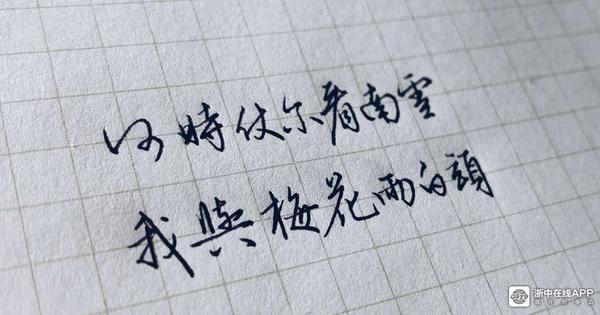 何時仗尔看南雪
我與梅花兩白頭
浙中在线APP